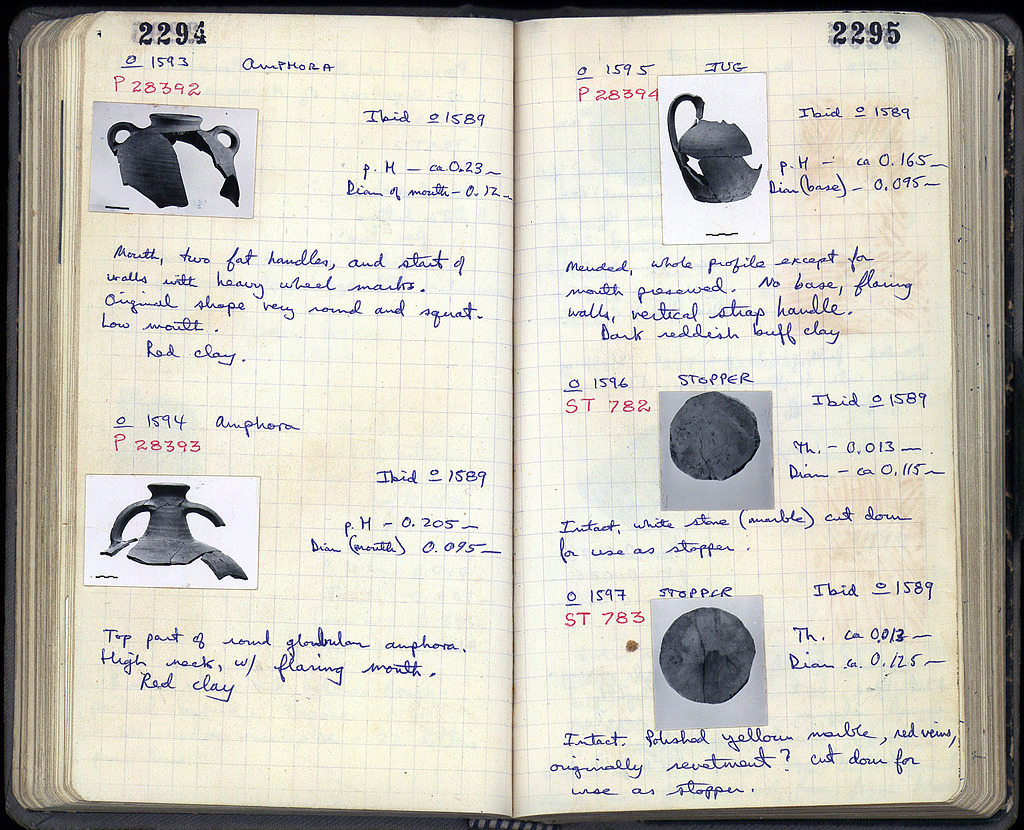 2294
o 1593 AMPHORA
P 28392
Ibid o 1589
p. H — ca 0.23 m
Diam of mouth – 0.12 m
Mouth, two fat handles, and start of
walls with heavy wheel marks.
Original shape very round and squat.
Low mouth.
Red clay.
o 1594 Amphora
P 28393
Ibid o 1589
p. H – 0.205 m
Diam (mouth) 0.095 m
Top part of round globular amphora.
High neck, w/ flaring mouth.
Red clay
2295
o 1595 JUG
P 28394
Ibid o 1589
p. H – ca 0.165 m
Diam (base) – 0.095 m
Mended, whole profile except for
mouth preserved. No base, flaring
walls, vertical strap handle.
Dark reddish buff clay
o 1596 STOPPER
ST 782
Ibid o 1589
Th. – 0.013 m.
Diam – ca 0.115 m
Intact, white stone (marble) cut down
for use as stopper.
o 1597 STOPPER
ST 783
Ibid o 1589
Th. ca 0.013 m
Diam ca. 0.125 m
Intact. Polished yellow marble, red veins,
originally revetment? cut down for
use as stopper.